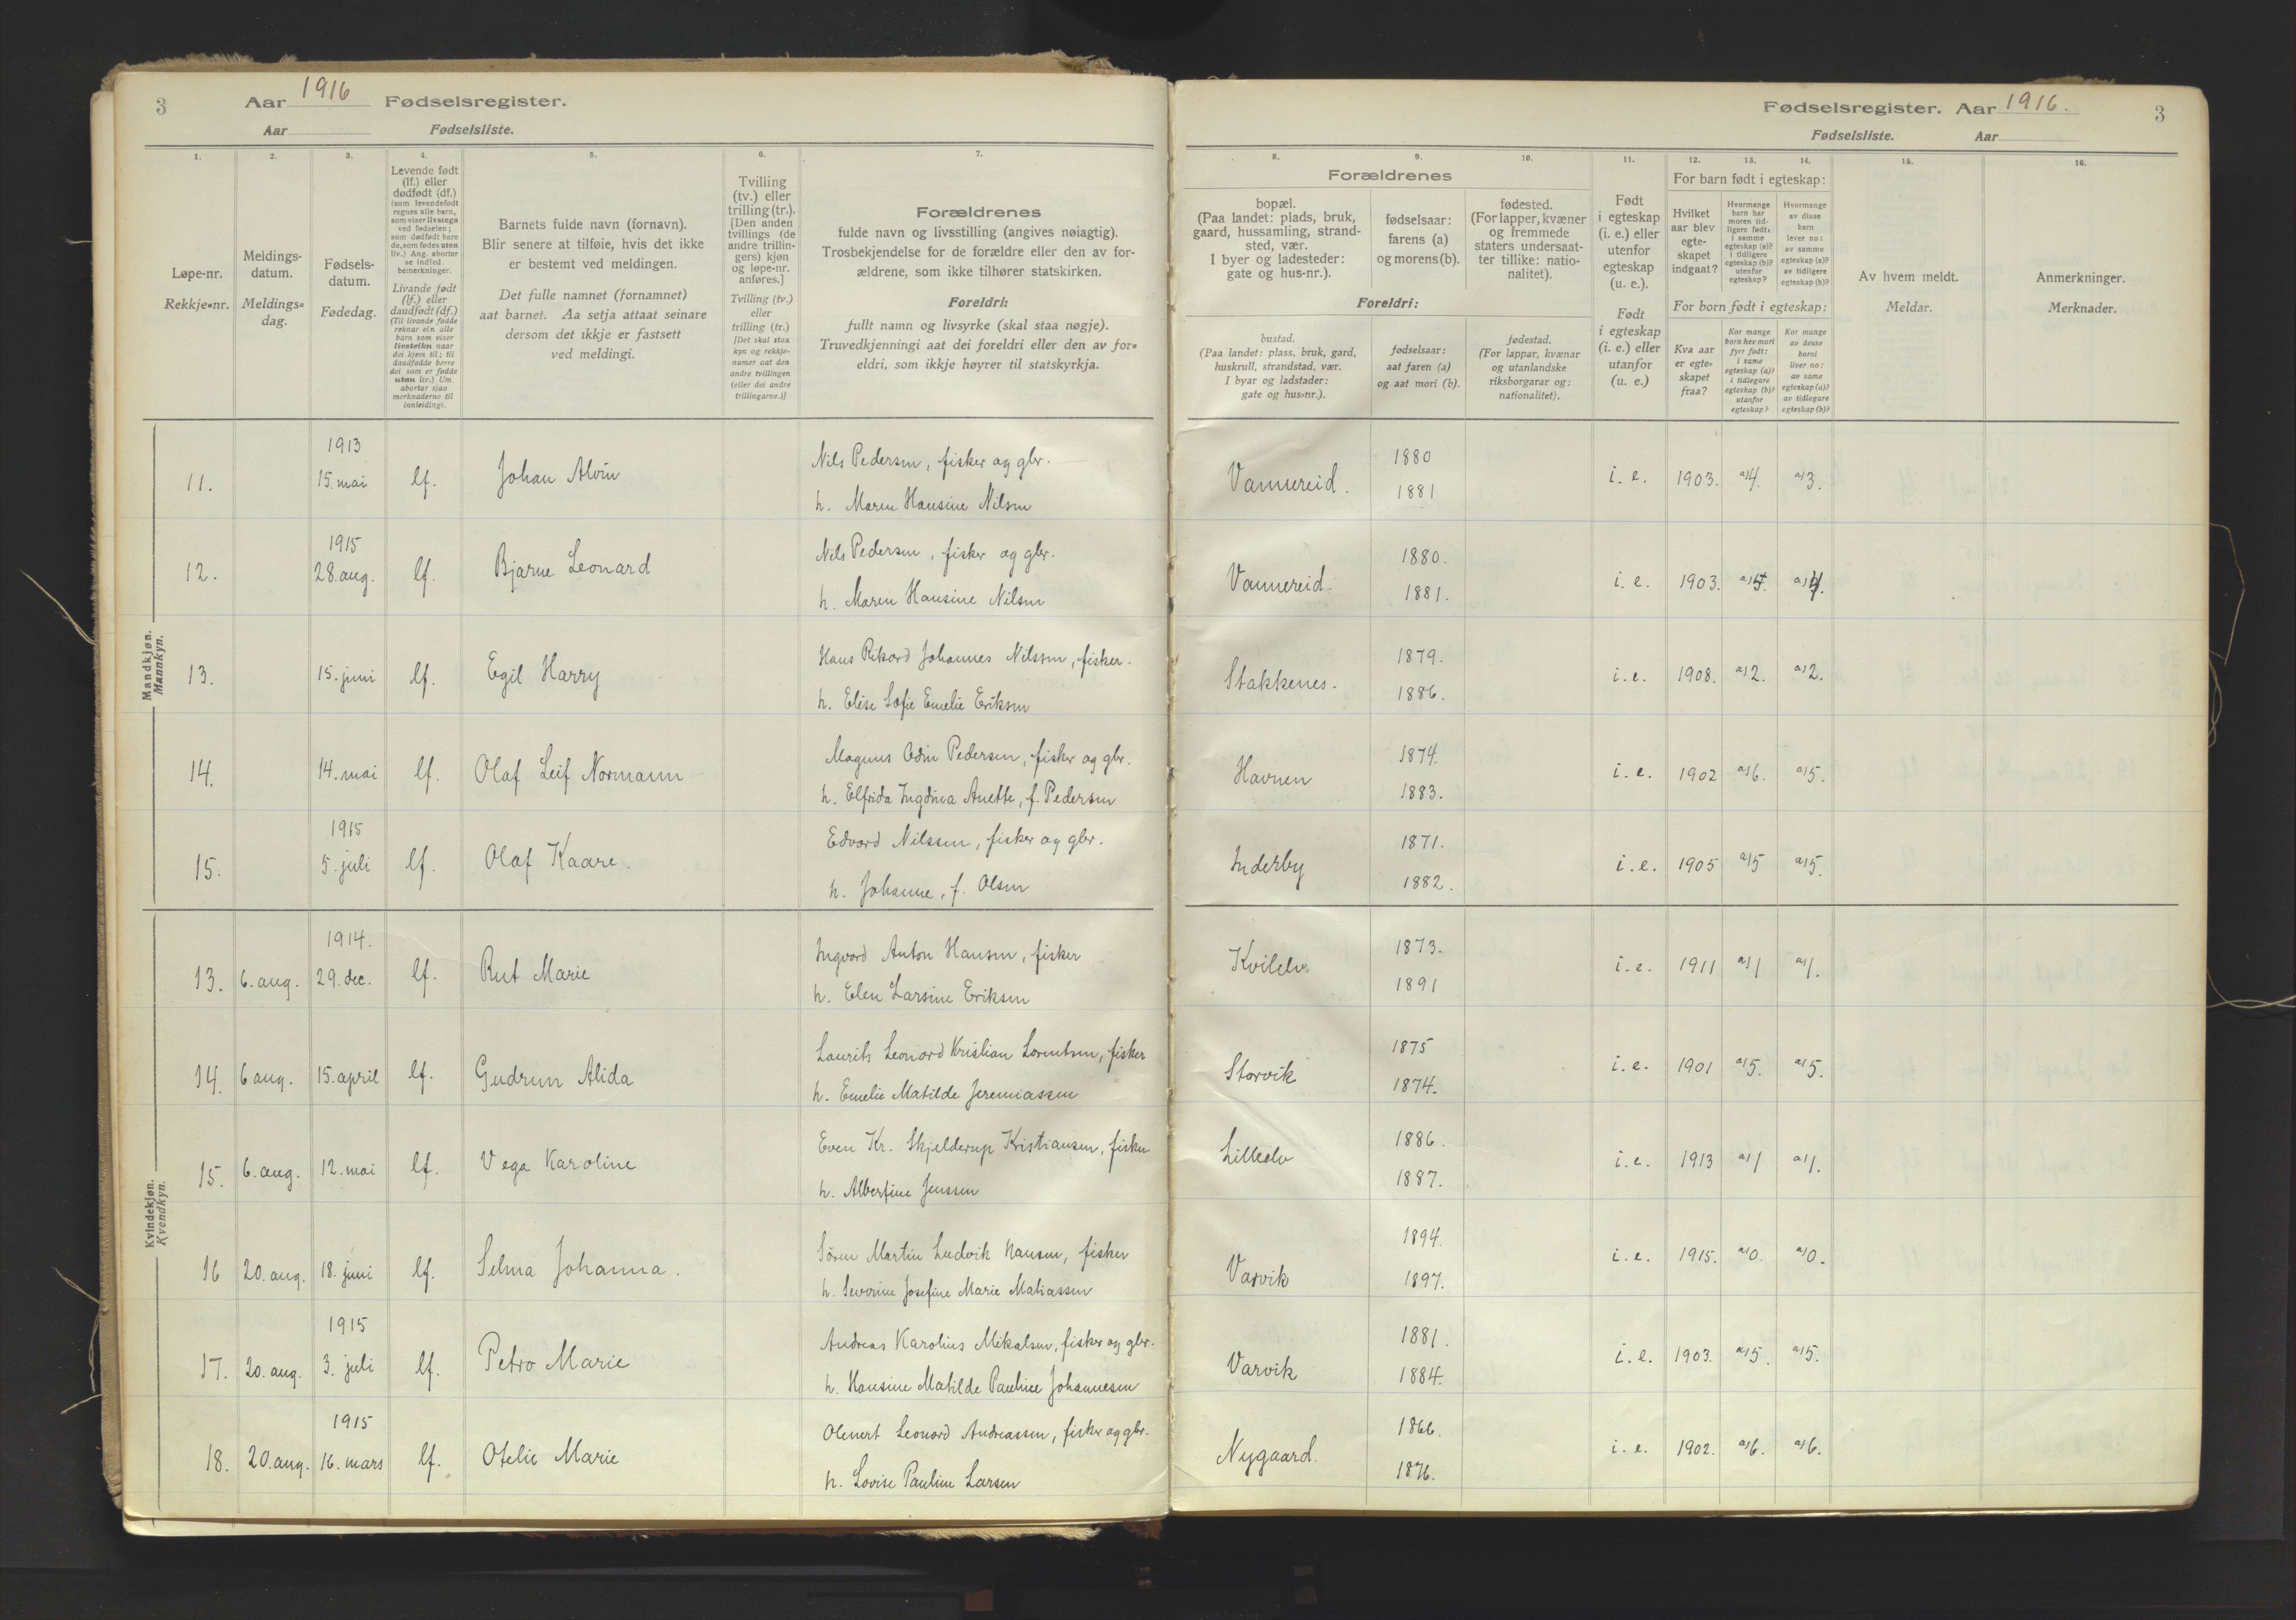 3 Aar 1916 Fødselsregister.
Aar Fødselsliste.
Fødselsregister. Aar 1916. 3
Fødselsliste. Aar
1. 2. 3. 4. 5. 6. 7. 8. 9. 10. 11. 12. 13. 14. 15. 16.
Løpe-nr.
Rekkje-nr.
Meldings-
datum.
Meldings-
dag.
Fødsels-
datum.
Fødedag.
Levende født
(lf.) eller
dødfødt (df.)
(som levendefødt
regnes alle barn,
som viser livstegn
ved fødselen;
som dødfødt bare
de, som fødes uten
liv.) Ang. aborter
se indled.
bemerkninger.
Livande født
(lf.) eller
daudfødt (df.)
(Til livande fødde
reknar ein alle
barn som viser
livsteikn naar
dei kjem til; til
daudfødde berre
dei som er fødde
utan liv.) Um
abortar sjaa
merknaderne til
innleidingi.
Barnets fulde navn (fornavn).
Blir senere at tilføie, hvis det ikke
er bestemt ved meldingen.
Det fulle namnet (fornamnet)
aat barnet. Aa setja attaat seinare
dersom det ikkje er fastsett
ved meldingi.
Tvilling
(tv.) eller
trilling (tr.).
[Den anden
tvillings (de
andre trillin-
gers) kjøn
og løpe-nr.
anføres.]
Tvilling (tv.)
eller
trilling (tr.)
[Det skal staa
kyn og rekkje-
numer aat den
andre tvillingen
(eller dei andre
trillingarne.)]
Forældrenes
fulde navn og livsstilling (angives nøiagtig).
Trosbekjendelse for de forældre eller den av for-
ældrene, som ikke tilhører statskirken.
Foreldri:
fullt namn og livsyrke (skal staa nøgje).
Truvedkjenningi aat dei foreldri eller den av for-
eldri, som ikkje høyrer til statskyrkja.
Forældrenes
bopæl.
(Paa landet: plads, bruk,
gaard, hussamling, strand-
sted, vær.
I byer og ladesteder:
gate og hus-nr.).
fødselsaar:
farens (a)
og morens (b).
fødested.
(For lapper, kvæner
og fremmede
staters undersaat-
ter tillike: natio-
nalitet).
Foreldri:
bustad.
(Paa landet: plass, bruk, gard,
huskrull, strandstad, vær.
I byar og ladstader:
gate og hus-nr.).
fødselsaar:
aat faren (a)
og aat mori (b).
fødestad.
(For lappar, kvænar
og utanlandske
riksborgarar og:
nationalitet).
Født
i egteskap
(i. e.) eller
utenfor
egteskap
(u. e.).
Født
i egteskap
(i. e.) eller
utanfor
(u. e.)
For barn født i egteskap:
Hvilket
aar blev
egte-
skapet
indgaat?
Hvormange
barn har
moren tid-
ligere født:
i samme
egteskap (a)?
i tidligere
egteskap (b)?
utenfor
egteskap?
Hvormange
av disse
barn
lever nu:
av samme
egteskap (a)?
av tidligere
egteskap (b)?
For born født i egteskap:
Kva aar
er egte-
skapet
fraa?
Kor mange
born hev mori
fyrr født:
i same
egteskap (a)?
i tidlegare
egteskap (b)?
utanfor
egteskap?
Kor mange
av desse
borni
liver no:
av same
egteskap (a)?
av tidlegare
egteskap (b)?
Av hvem meldt.
Meldar.
Anmerkninger.
Merknader.
Mandkjøn.
Mannkyn.
1913
11. 15. mai lf. Johan Alvin
Nils Pedersen, fisker og gbr.
h. Maren Hansine Nilsen
Vannereid. 1880 1881 i. e. 1903. a)4. a)3.
1915
12. 28. aug. lf. Bjarne Leonard
Nils Pedersen, fisker og gbr.
h. Maren Hansine Nilsen
Vannereid. 1880. 1881. i. e. 1903. a)5. a)4.
13. 15. juni lf. Egil Harry
Hans Rikard Johannes Nilsen, fisker.
h. Elise Sofie Emelie Eriksen
Stakkenes. 1879. 1886. i. e. 1908. a)2. a)2.
14. 14. mai lf. Olaf Leif Normann
Magnus Odin Pedersen, fisker og gbr.
h. Elfrida Ingdina Anette, f. Pedersen
Havnen 1874. 1883. i. e. 1902 a)6. a)5.
1915
15. 5. juli lf. Olaf Kaare.
Edvard Nilssen, fisker og gbr.
h. Johanne, f. Olsen
Inderby 1871. 1882. i. e. 1905 a)5 a)5.
Kvindekjøn.
Kvendkyn.
1914.
13. 6. aug. 29. dec. lf. Rut Marie
Ingvard Anton Hansen, fisker
h. Elen Larsine Eriksen
Kvilelv 1873. 1891 i. e. 1911 a)1 a)1.
14. 6 aug. 15. april lf. Gudrun Alida
Laurits Leonard Kristian Lorentsen, fisker
h. Emelie Matilde Jeremiassen
Storvik 1875 1874. i. e. 1901 a)5. a)5.
15. 6. aug. 12. mai lf. Vega Karoline
Even Kr. Skjelderup Kristiansen, fisker
h. Albertine Jenssen
Lilleelv 1886. 1887. i. e. 1913 a)1 a)1.
16 20. aug. 18. juni lf. Selma Johanna.
Sören Martin Ludvik Hansen, fisker
h. Severine Josefine Marie Matiassen
Varvik 1894. 1897. i. e. 1915. a)0. a)0.
1915
17. 20. aug. 3. juli lf. Petra Marie
Andreas Karolius Mikalsen, fisker og gbr.
h. Hansine Matilde Pauline Johannesen
Varvik 1881. 1884. i. e. 1903. a)5. a)5.
1915
18. 20. aug. 16. mars lf. Otelie Marie
Olenert Leonard Andreassen, fisker og gbr.
h. Lovise Pauline Larsen
Nygaard. 1866. 1876. i. e. 1902. a)6. a)6.